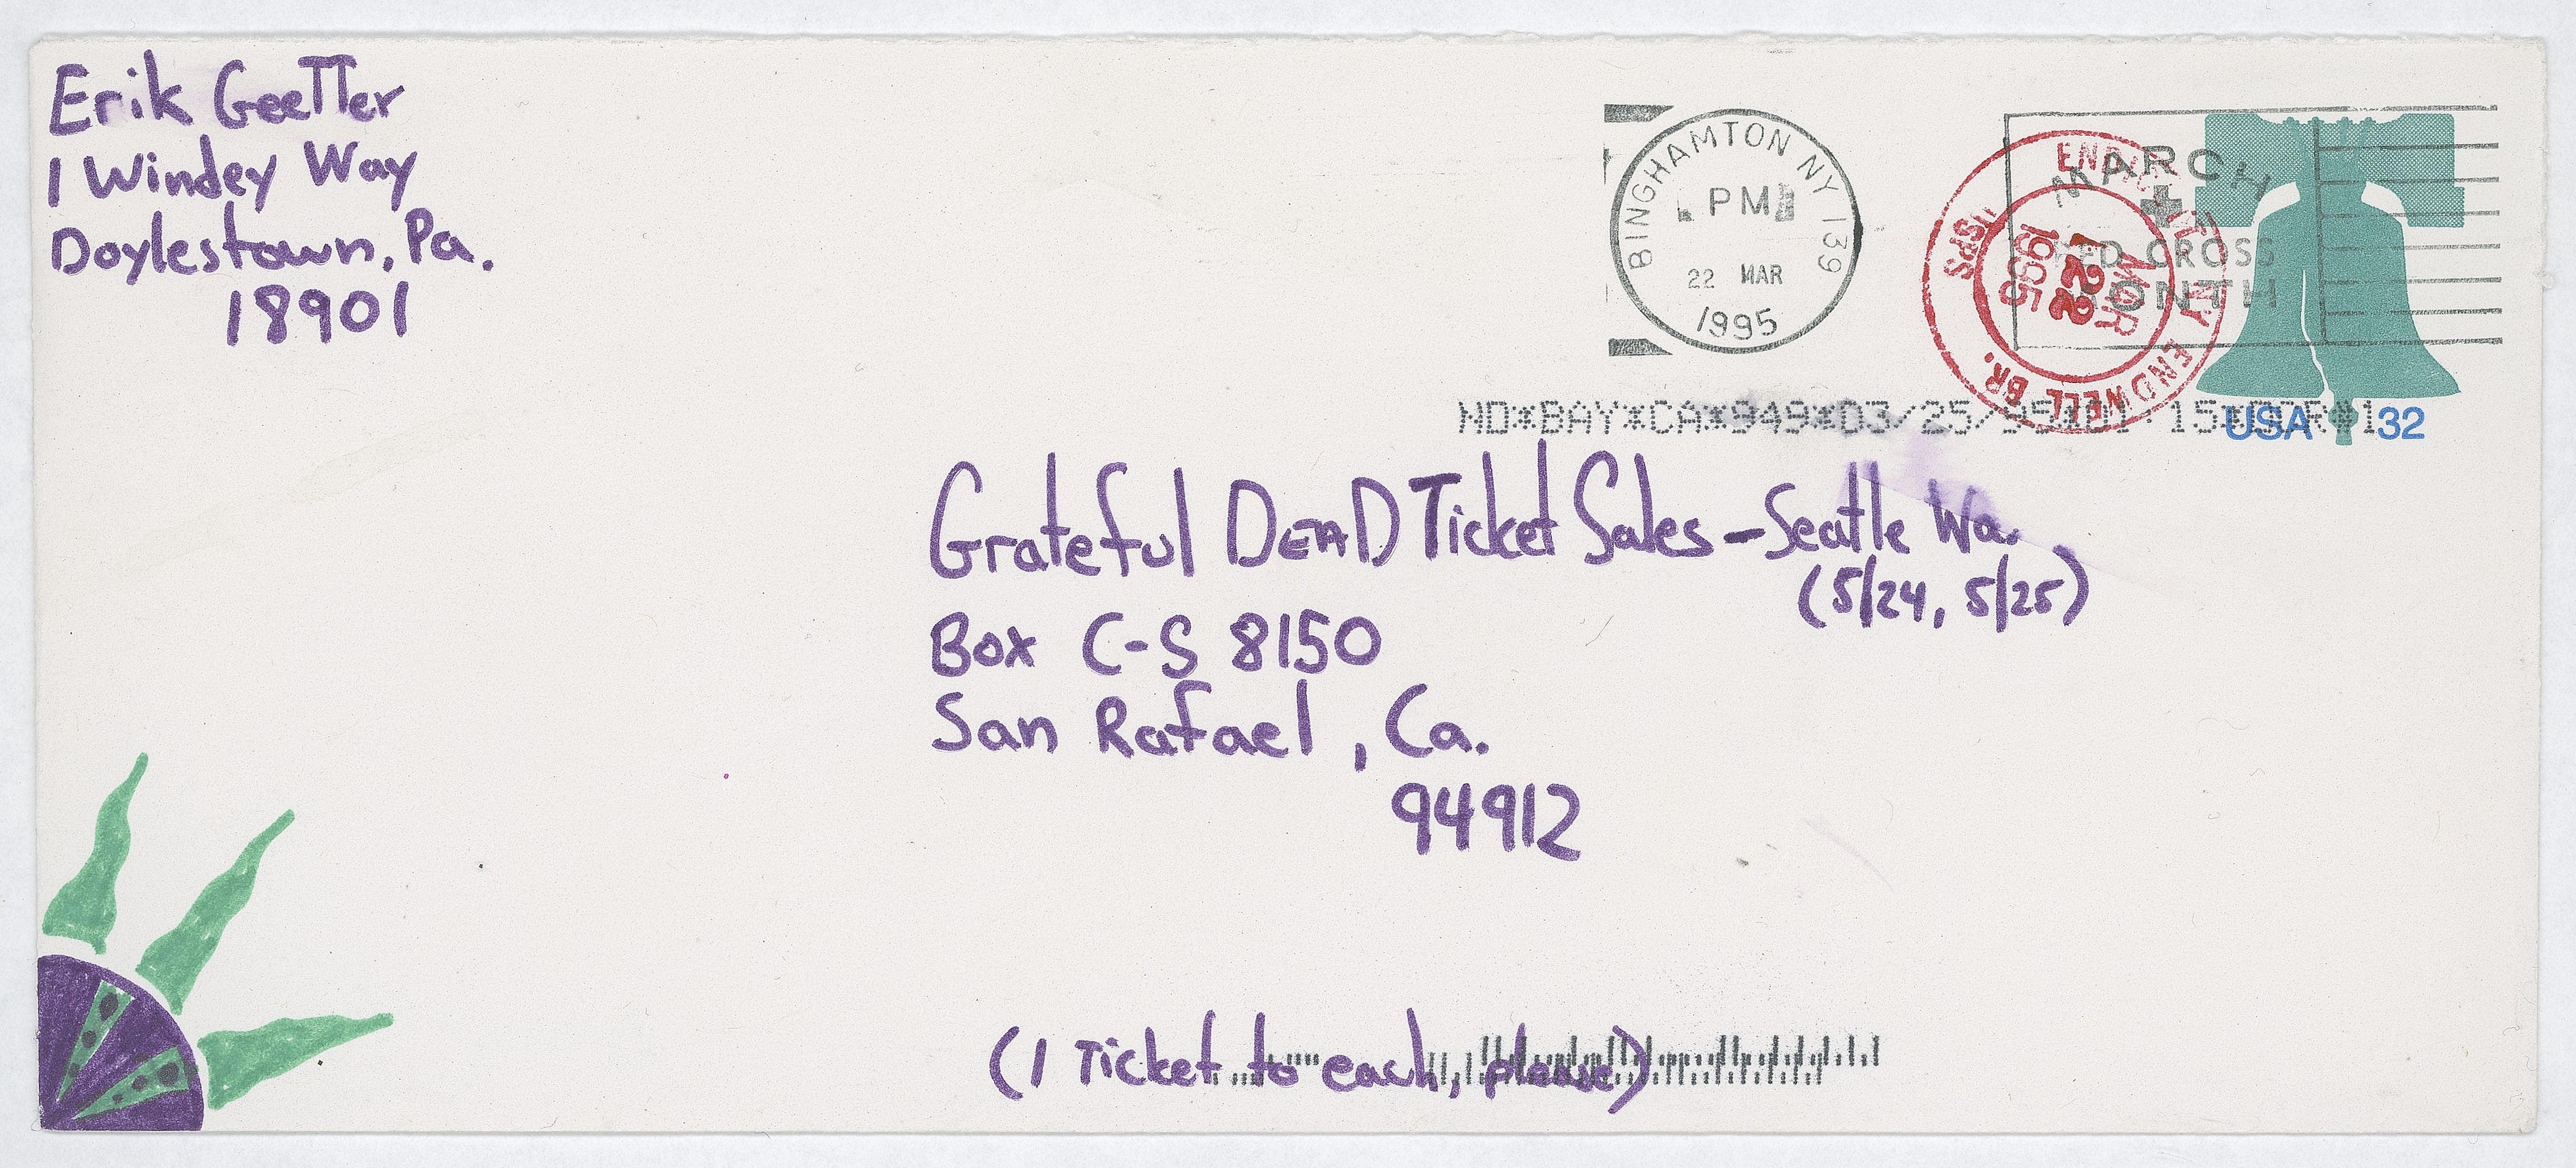 Erik Geetter
1 Windey Way
Doylestown, Pa.
18901
BINGHAMTON NY 139
PM
22 MAR
1995
MARCH
RED CROSS
MONTH
ENDWELL BR.
USPS
MAR
22
1995
USA 32
Grateful DEAD Ticket Sales - Seattle Wa.
(5/24, 5/25)
Box C-S 8150
San Rafael, Ca.
94912
(1 Ticket to each, please)